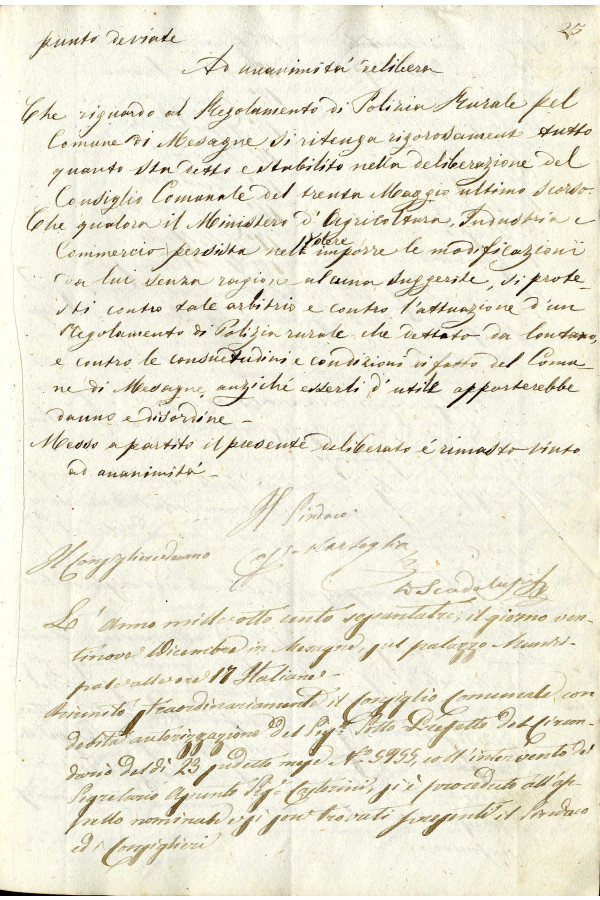 25
punto deviate
Ad unanimità delibera
Che riguardo al Regolamento di Polizia Rurale pel
Comune di Mesagne si ritenga rigorosamente tutto
quanto sta detto e stabilito nella deliberazione del
Consiglio Comunale del trenta Maggio ultimo scorso.
Che qualora il Ministero d'Agricoltura, Industria e
Commercio persista nell volere imporre le modificazioni
da lui senza ragione alcuna suggerite, si prote-
sti contro tale arbitrio e contro l'attuazione d'un
Regolamento di Polizia rurale che dettato da lontano,
e contro le consuetudini e condizioni di fatto del Comu-
ne di Mesagne anziché esserli d'utile apporterebbe
danno e disordine -
Messo a partito il presente deliberato é rimasto vinto
ad unanimità -
Il Sindaco
Il Consigliere anziano
L'anno mille otto cento settantatre, il giorno ven-
tinove Dicembre in Mesagne, sul palazzo Munici-
pale alle ore 17 Italiane -
Riunito straordinariamente il Consiglio Comunale con
debita autorizzazione del Sigr. Sotto Prefetto del Circon-
dario del dì 23 predetto mese No. 5955, coll'intervento del
Segretario Sigr. si è proceduto all'ap-
pello nominale e si son trovati presenti il Sindaco
ed i Consiglieri